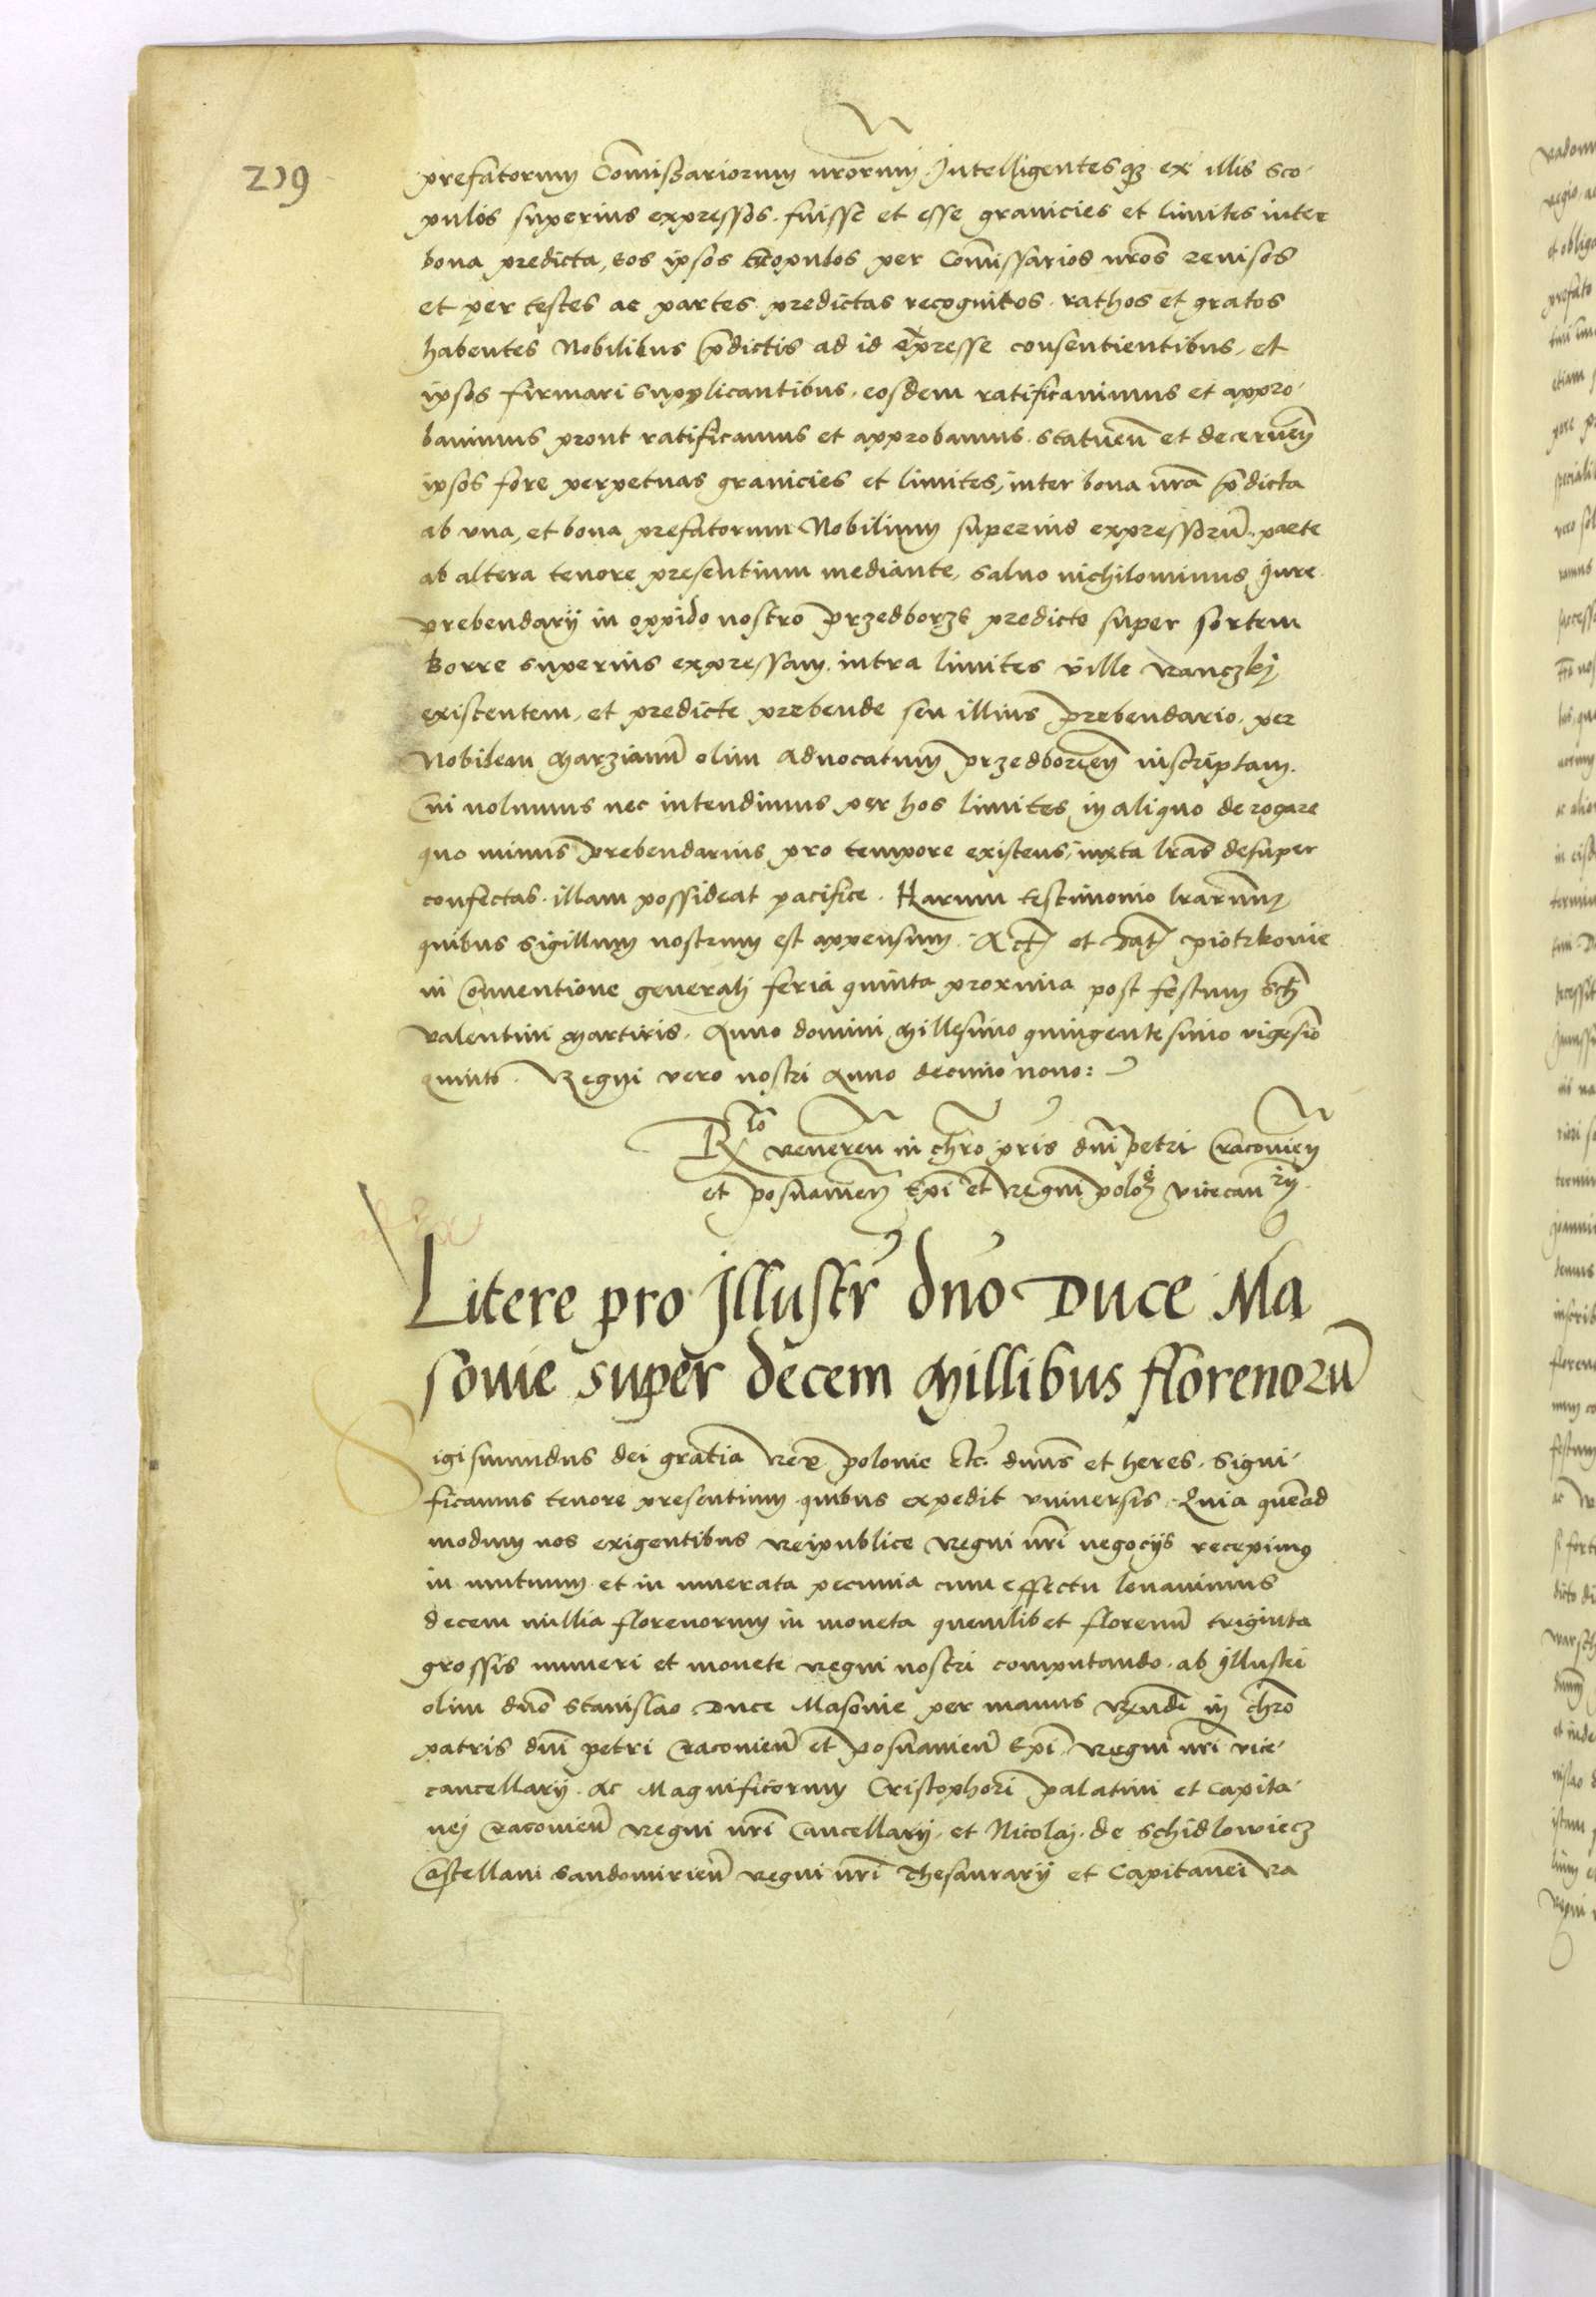 219
prefatorum Com̃issariorum nrõrum Intelligentesqȝ ex illis sco-
pulos superius expressos. fuisse et esse granicies et limites inter
bona predicta, Eos ipsos scopulos per Com̃issarios nrõs revisos
et per testes ac partes predictas recognitos. rathos et gratos
habentes Nobilibus p̃dictis ad id expresse consentientibus, et
ipsos firmari supplicantibus. eosdem ratificavimus et appro-
bavimus prout ratificamus et approbamus. statueñ et decerneñ
ipsos fore perpetuas granicies et limites, inter bona nrã p̃dicta
ab vna, et bona prefatorum Nobilium superius expressorũ. parte
ab altera tenore presentium mediante, salvo nichilominus Jure
prebendarÿ in oppido nostro Przedborzs predicto super sortem
Borre superius expressam. intra limites ville vanczkÿ
existentem, et predicte prebende seu illius Prebendario. per
Nobilem Marzianũ olim Advocatum Przedborieñ inscriptam.
Cui nolumus nec intendimus per hos limites in aliquo derogare
quo minus Prebendarius pro tempore existens, iuxta lrãs desuper
confectas. illam possideat pacifice. Harum testimonio lrarum
quibus sigillum nostrum est appensum. Act̃ et Dat̃ Piotrkovie
in Conventione generali feria quinta proxima post festum Scti
valentini Martiris. Anno domini Millesimo quingentesimo vigesio
quinto. Regni vero nostri Anno decimo nono:
Rᵗᵒ venereñ in chro pr̃is dni Petri Cracovieñ
et Posnanieñ Epĩ et Regni polo vicecanrÿ
Litere pro Jllustr̃ dñõ Duce Ma
sovie super decem Millibus florenorũ
Sigismundus dei gratia Rex polonie etc. dnũs et heres. Signi-
ficamus tenore presentium quibus expedit vniversis. Quia quẽad
modum nos exigentibus Reipublice Regni nrĩ negocÿs recepimꝰ
in mutuum et in numerata pecunia cum effectu levavimus
decem millia florenorum in moneta quemlibet florenũ triginta
grossis numeri et monete Regni nostri computando. ab Jllustri
olim dnõ Stanislao Duce Masovie per manus Rendĩ in chro
patris dnĩ Petri Cracovieñ et Posnanieñ Epĩ. Regni nrĩ vice-
cancellarÿ. Ac Magnificorum Cristophori palatini et Capita-
nei Cracovieñ Regni nrĩ Cancellarÿ, et Nicolaj. de Schidlowiecz
Castellani Sandomirieñ Regni nrĩ Thesaurarÿ et Capitanei Ra